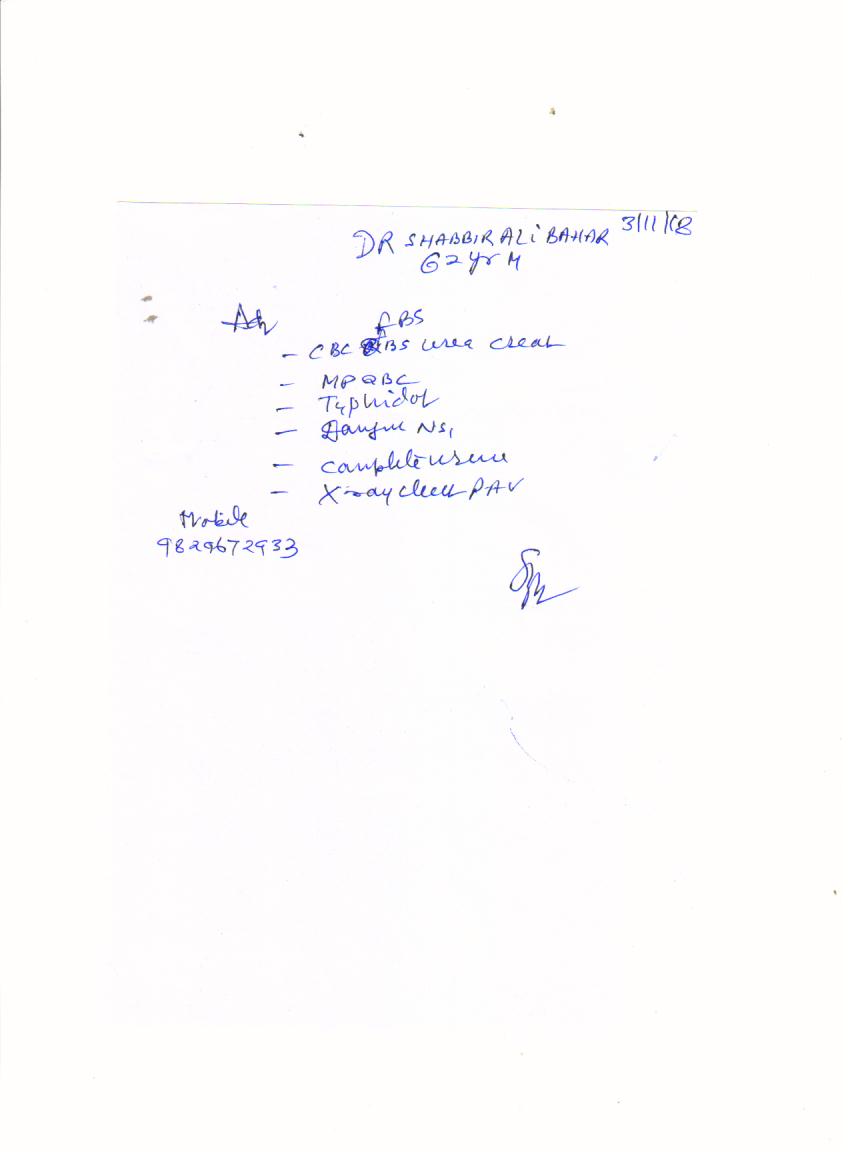 3/11/18
DR SHABBIR ALI BAHAR
62 yr M
Adv
FBS
- CBC BS urea creat
- MP QBC
- Typhidot
- Dengue NS1
- Complete urine
- X-ray chest PAV
Mobile
9829672933